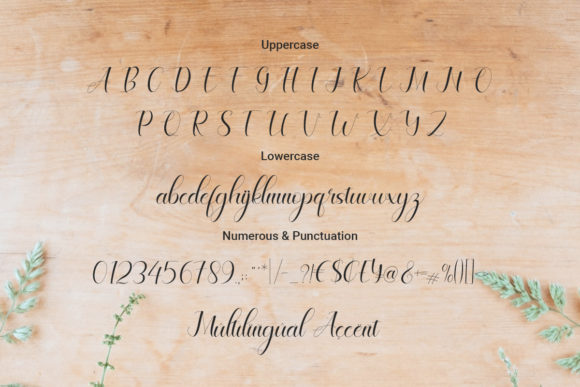 Uppercase
A B C D E F G H I J K L M N O
P Q R S T U V W X Y Z
Lowercase
abcdefghijklmnopqrstuvwxyz
Numerous & Punctuation
0123456789.,:;"'*|/-_?!€$¢£¥@&+=#%()[]
Multilingual Accent